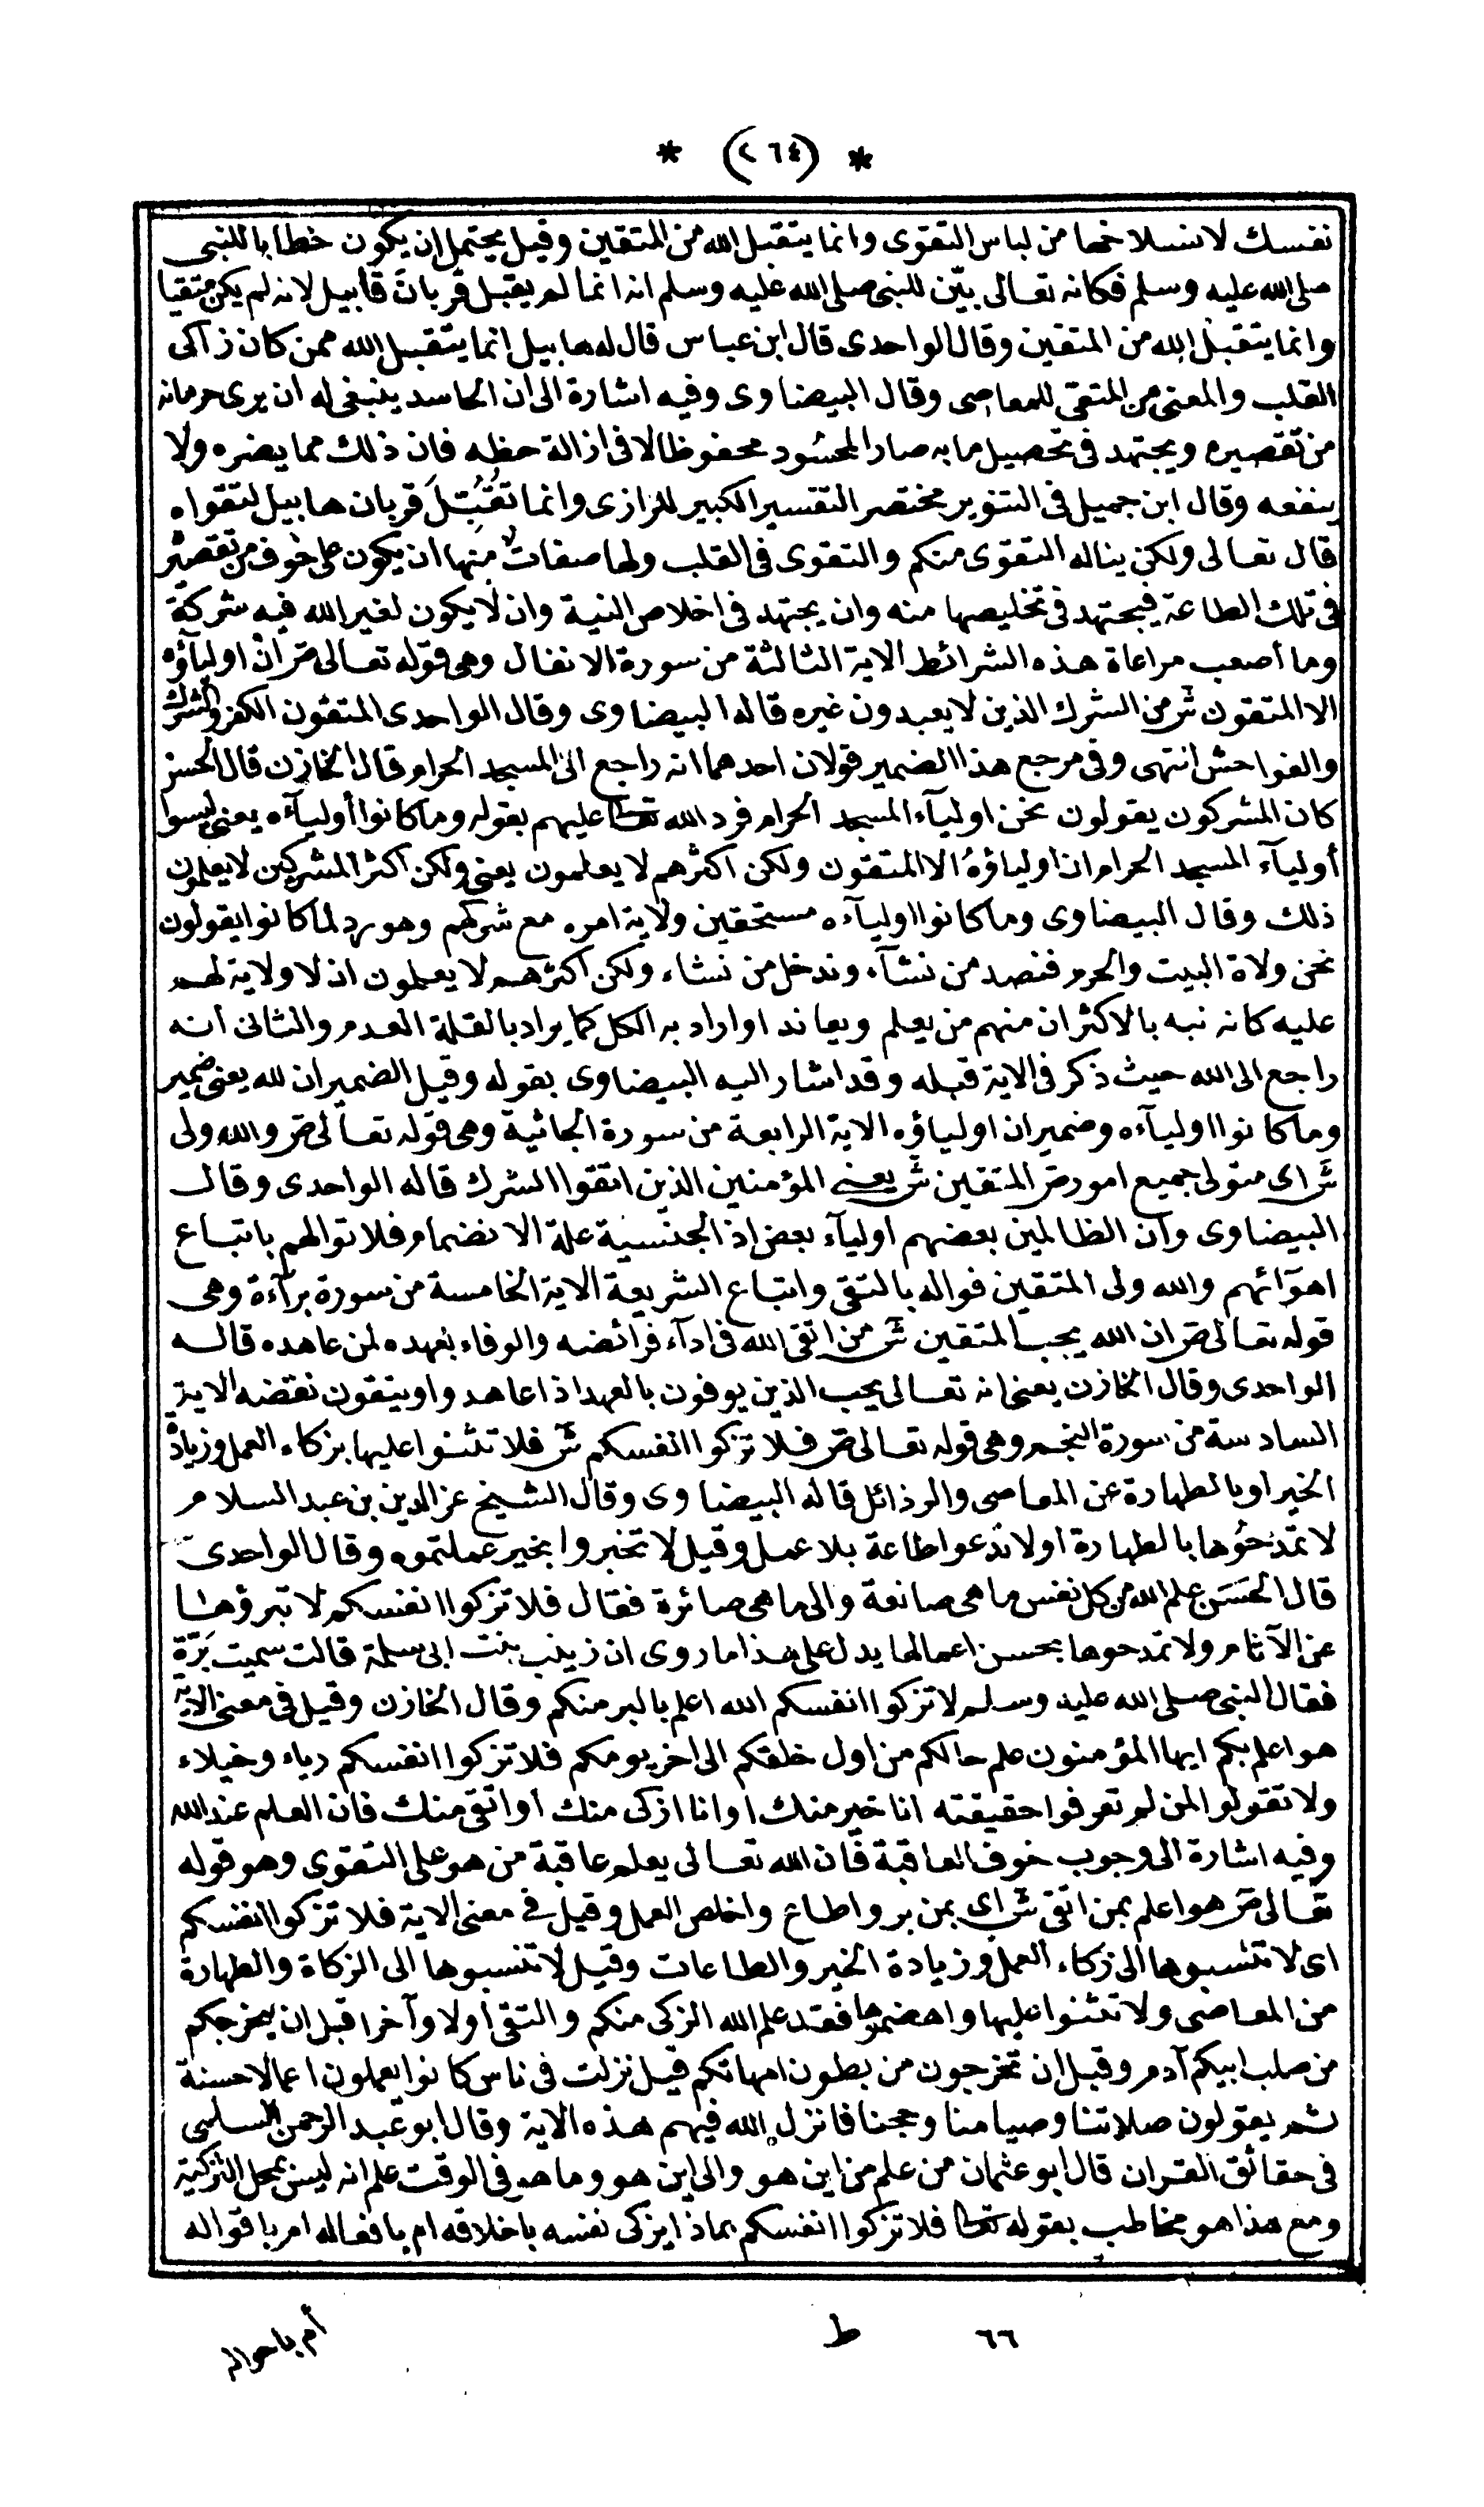 * (٢٦٤) *
نفسك لانسلاخها من لباس التقوى وانما يتقبل الله من المتقين وقيل يحتمل ان يكون خطابا للنبى
صلى الله عليه وسلم فكانه تعالى بيّن للنبى صلى الله عليه وسلم انه انما لم يقبل قربانَ قابيل لانه لم يكن متقيا
وانما يتقبل الله من المتقين وقال الواحدى قال ابن عباس قال له هابيل انما يتقبل الله ممن كان زاكى
القلب والمعنى من المتقي للمعاصى وقال البيضاوى وفيه اشارة الى ان الحاسد ينبغى له ان يرى حرمانه
من تقصيره ويجتهد فى تحصيل ما به صار المحسُود محفوظا لا فى ازالة حظه فان ذلك مما يضره ولا
ينفعه وقال ابن جميل فى التنوير مختصر التفسير الكبير للرازى وانما تُقُبِّلَ قربان هابيل لتقواه
قال تعالى ولكن يناله التقوى منكم والتقوى فى القلب ولها صفاتٌ منها ان يكون على خوف من تقصير
فى تلك الطاعة فيجتهد فى تخليصها منه وان يجتهد فى اخلاص النية وان لا يكون لغير الله فيه شركة
وما أصعب مراعاة هذه الشرائط الاية الثالثة من سورة الانفال وهى قوله تعالى ص ان اولياؤه
الا المتقون ش من الشرك الذين لا يعبدون غيره قاله البيضاوى وقال الواحدى المتقون الكفر والشرك
والفواحش انتهى وفى مرجع هذا الضمير قولان احدهما انه راجع الى المسجد الحرام قال الخازن قال الحسن
كان المشركون يقولون نحن اوليآء المسجد الحرام فرد الله تعا عليهم بقوله وما كانوا أوليآءه يعنى ليسوا
أوليآء المسجد الحرام ان اولياؤهُ الا المتقون ولكن اكثرهم لا يعلمون يعنى ولكن اكثر المشركين لا يعلمون
ذلك وقال البيضاوى وما كانوا اوليآءه مستحقين ولاية امره مع شركهم وهو رد لما كانوا يقولون
نحن ولاة البيت والحرم فنصد من نشآء وندخل من نشاء ولكن اكثرهم لا يعلمون ان لا ولاية لهم
عليه كانه نبه بالاكثر ان منهم من يعلم ويعاند او اراد به الكل كما يراد بالقلة العدم والثانى انه
راجع الى الله حيث ذكر فى الاية قبله وقد اشار اليه البيضاوى بقوله وقيل الضميران لله يعنى ضمير
وما كانوا اوليآءه وضمير ان اولياؤه الاية الرابعة من سورة الجاثية وهى قوله تعالى ص والله ولى
ش اى متولى جميع امور ص المتقين ش يعنى المؤمنين الذين اتقوا الشرك قاله الواحدى وقال
البيضاوى وان الظالمين بعضهم اوليآء بعض اذ الجنسية علة الانضمام فلا توالهم باتباع
اهوآئهم والله ولى المتقين فواله بالتقى واتباع الشريعة الاية الخامسة من سورة برآءة وهى
قوله تعالى ص ان الله يحب المتقين ش من اتقى الله فى ادآء فرائضه والوفاء بعهده لمن عاهده قاله
الواحدى وقال الخازن يعنى انه تعالى يحب الذين يوفون بالعهد اذا عاهدوا ويتقون نقضه الاية
السادسة من سورة النجم وهى قوله تعالى ص فلا تزكوا انفسكم ش فلا تثنوا عليها بزكاء العمل وزيادة
الخير او بالطهارة عن المعاصى والرذائل قاله البيضاوى وقال الشيخ عز الدين بن عبد السلام
لا تمدحُوها بالطهارة او لا تدعوا طاعة بلا عمل وقيل لا تخبروا بخير عملتموه وقال الواحدى
قال الحَسَن علم الله من كل نفس ما هى صانعة والى ما هى صائرة فقال فلا تزكوا انفسكم لا تبرؤها
عن الآثام ولا تمدحوها بحسن اعمالها يدل على هذا ما روى ان زينب بنت ابى سلمة قالت سميت بَرّة
فقال النبى صلى الله عليه وسلم لا تزكوا انفسكم الله اعلم بالبر منكم وقال الخازن وقيل فى معنى الاية
هو اعلم بكم ايها المؤمنون علم حالكم من اول خلقكم الى اخر يومكم فلا تزكوا انفسكم رياء وخيلاء
ولا تقولوا لمن لم تعرفوا حقيقته انا خير منك او انا ازكى منك او اتقى منك فان العلم عند الله
وفيه اشارة الى وجوب خوف العاقبة فان الله تعالى يعلم عاقبة من هو على التقوى وهو قوله
تعالى ص هو اعلم بمن اتقى ش اى بمن بر واطاع واخلص العمل وقيل فى معنى الاية فلا تزكوا انفسكم
اى لا تنسبوها الى زكاء العمل وزيادة الخير والطاعات وقيل لا تنسبوها الى الزكاة والطهارة
من المعاصى ولا تثنوا عليها واهضموها فقد علم الله الزكى منكم والتقى اولا وآخرا قبل ان يخرجكم
من صلب ابيكم آدم وقبل ان تخرجون من بطون امهاتكم قيل نزلت فى ناس كانوا يعملون اعمالا حسنة
ثم يقولون صلاتنا وصيامنا وحجنا فانزل الله فيهم هذه الاية وقال ابو عبد الرحمن السلمى
فى حقائق القران قال ابو عثمان من علم من اين هو والى اين هو وما هو فى الوقت علم انه ليس بمحل التزكية
ومع هذا هو مخاطب بقوله تعا فلا تزكوا انفسكم بماذا يزكى نفسه باخلاقه ام بافعاله ام باقواله
٦٦ ط أم باحواله